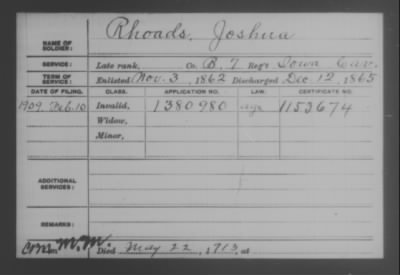 NAME OF SOLDIER: Rhoads, Joshua
SERVICE: Late rank, Co. B, 7 Reg't Iowa Cav.
TERM OF SERVICE: Enlisted Nov. 3, 1862 Discharged Dec. 12, 1865
DATE OF FILING. CLASS. APPLICATION NO. LAW. CERTIFICATE NO.
1909 Feb. 10 Invalid, 1380980 age 1153674
Widow,
Minor,
ADDITIONAL SERVICES:
REMARKS:
M.M. Died May 22, 1913, at